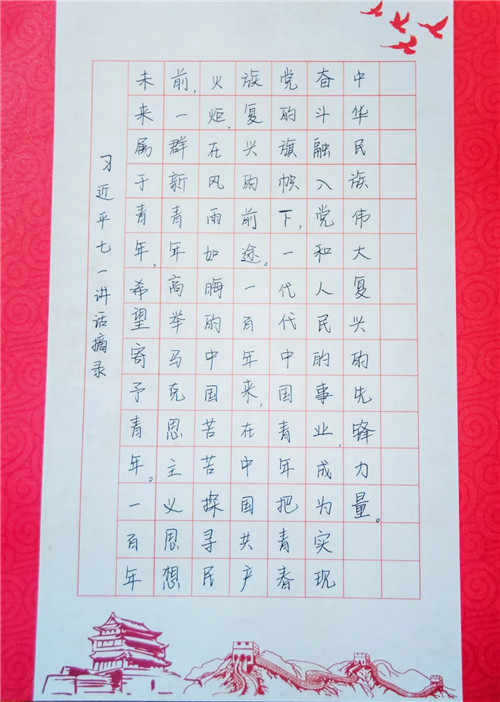 习近平七一讲话摘录
未来属于青年,希望寄予青年。一百年
前,一群新青年高举马克思主义思想
火炬,在风雨如晦的中国苦苦探寻民
族复兴的前途。一百年来,在中国共产
党的旗帜下,一代代中国青年把青春
奋斗融入党和人民的事业,成为实现
中华民族伟大复兴的先锋力量。